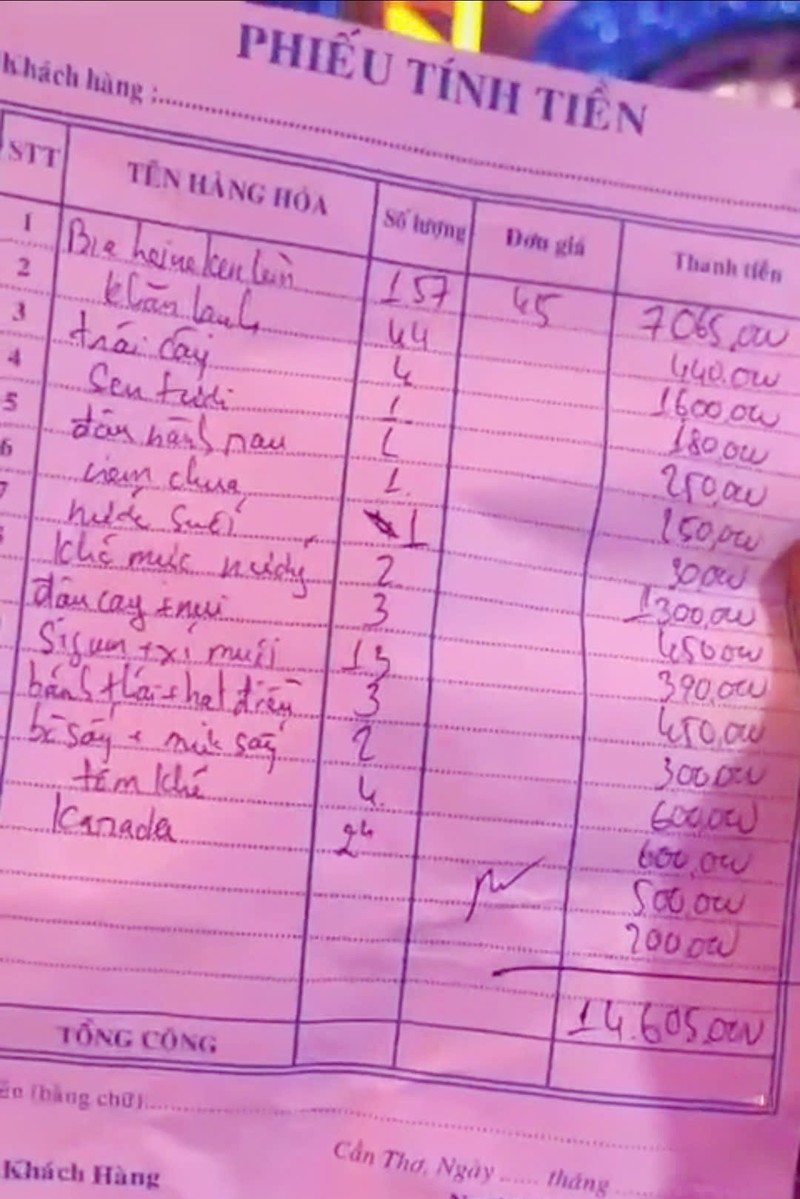 PHIẾU TÍNH TIỀN
Khách hàng :
STT TÊN HÀNG HÓA Số lượng Đơn giá Thanh tiền
1 Bia heineken lùn 157 45 7065,000
2 khăn lạnh 44 440.000
3 trái cây 4 1600.000
4 Sen tươi 1 180.000
5 1 250,000
6 nem chua 1. 250,000
7 nước suối 1 30.000
khô mực nướng 2 1300,000
đậu cay + nui 3 450.000
+ xí muội 13 390.000
bánh + hạt điều 3 450,000
bò sấy + mực sấy 2 300.000
tôm khô 4. 600,000
Kanada 24 600,000
500,000
200.000
14.605.000
TỔNG CỘNG
(bằng chữ)
Cần Thơ, Ngày ...... tháng ......
Khách Hàng